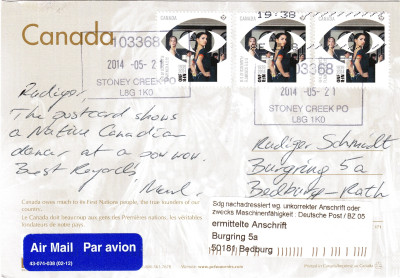 Canada
19:38
103368
2014 -05- 21
STONEY CREEK PO
L8G 1K0
2014 -05- 21
STONEY CREEK PO
L8G 1K0
CANADA
CANADA
CANADA
Rudiger,
The postcard shows
a Native Canadian
dancer at a pow wow.
Best Regards
Rudiger Schmidt
Burgring 5a
Bedburg-Rath
Canada owes much to its First Nations people, the true founders of our
country.
Le Canada doit beaucoup aux gens des Premières nations, les véritables
fondateurs de notre pays.
Sdg nachadressiert wg. unkorrekter Anschrift oder
zwecks Maschinenfähigkeit : Deutsche Post / BZ 05
ermittelte Anschrift
Burgring 5a
50181 Bedburg
Air Mail Par avion
43-074-038 (02-12)